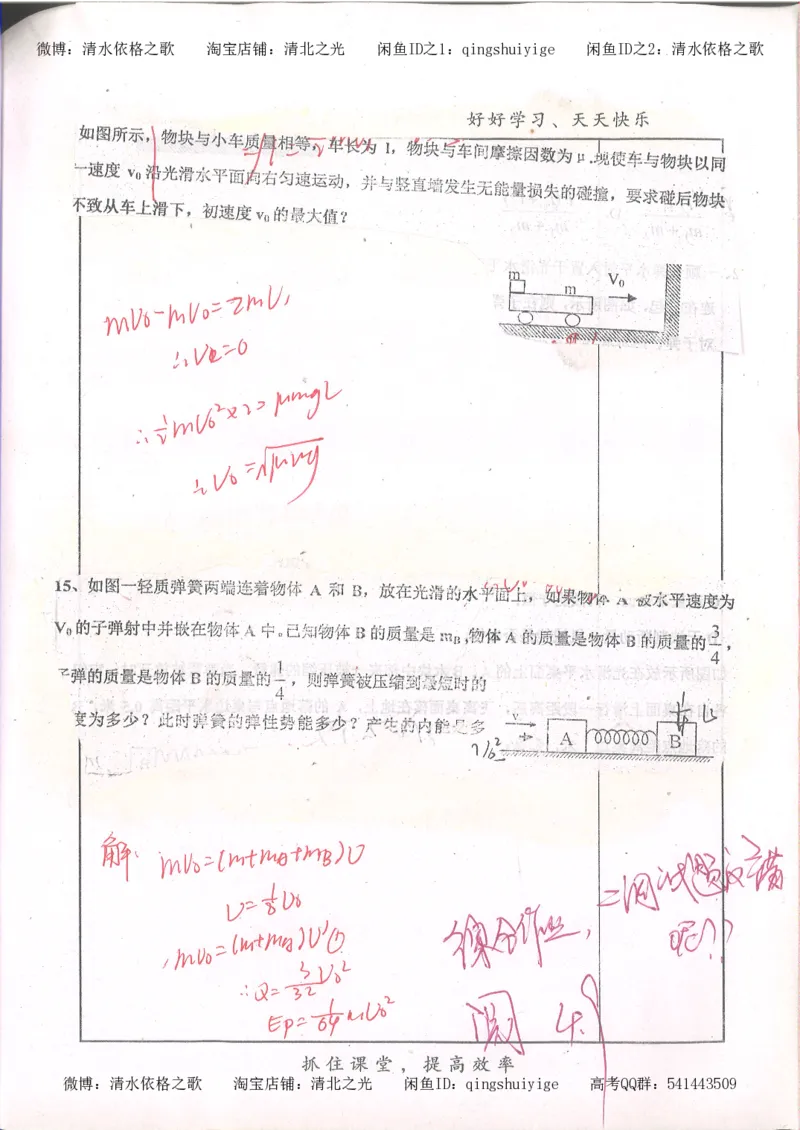 微博：清水依格之歌 淘宝店铺：清北之光 闲鱼ID之1：qingshuiyige 闲鱼ID之2：清水依格之歌
好好学习、天天快乐
如图所示，物块与小车质量相等，车长为 l，物块与车间摩擦因数为μ.现使车与物块以同
一速度 v₀ 沿光滑水平面向右匀速运动，并与竖直墙发生无能量损失的碰撞，要求碰后物块
不致从车上滑下，初速度 v₀ 的最大值？
m
m V₀
mV₀-mV₀=2mV,
∴V=0
∴½mV₀²×2=μmgL
∴V₀=
15、如图一轻质弹簧两端连着物体 A 和 B，放在光滑的水平面上，如果物体 A 被水平速度为
V₀的子弹射中并嵌在物体 A 中。已知物体 B 的质量是 mB,物体 A 的质量是物体 B 的质量的 3/4，
子弹的质量是物体 B 的质量的 1/4，则弹簧被压缩到最短时的
度为多少？此时弹簧的弹性势能多少？产生的内能是多
v
A B
解：mV₀=(m+mA+mB)V
V=⅛V₀
mV₀=(m+mA)V'①
∴Q=3/32 V₀²
Ep=1/64 mV₀²
二调试题没答满
呢??
作业,
阅 4.
抓住课堂，提高效率
微博：清水依格之歌 淘宝店铺：清北之光 闲鱼ID：qingshuiyige 高考QQ群：541443509